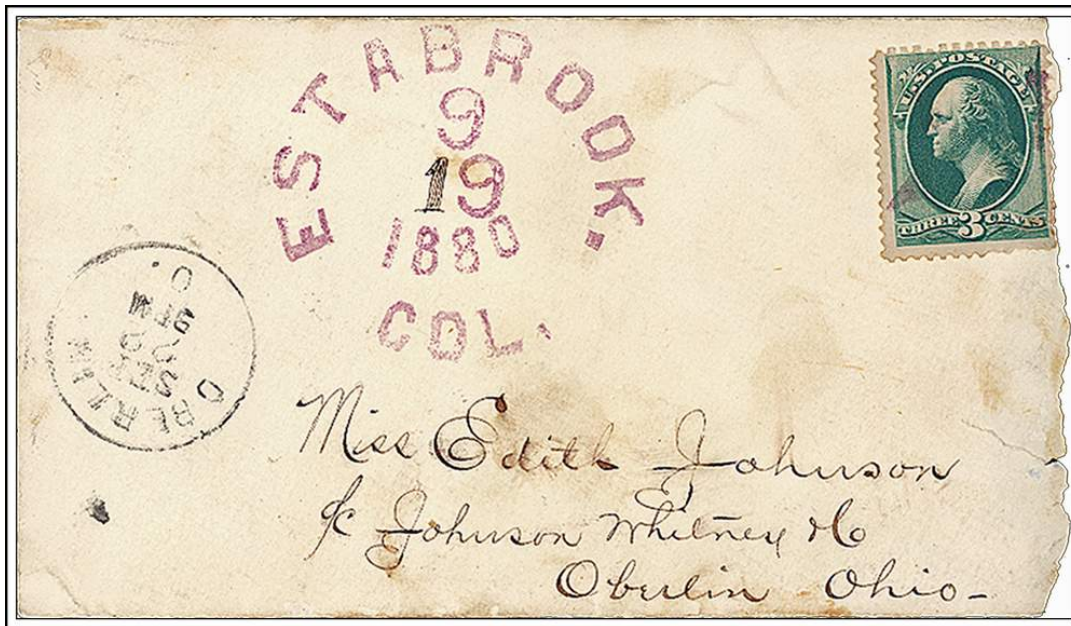 ESTABROOK.
9
19
1880
COL.
U.S. POSTAGE
THREE 3 CENTS
OBERLIN
SEP
O.
Miss Edith Johnson
c/o Johnson Whitney & Co
Oberlin Ohio-